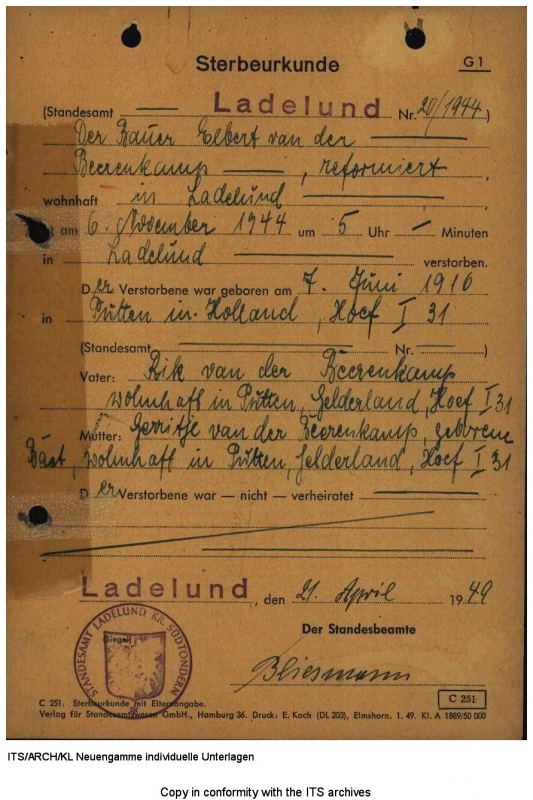 Sterbeurkunde G 1
(Standesamt Ladelund Nr. 20/1944)
Der Bauer Elbert van der
Beerenkamp, reformiert
wohnhaft in Ladelund
ist am 6. November 1944 um 5 Uhr — Minuten
in Ladelund verstorben.
Der Verstorbene war geboren am 7. Juni 1910
in Putten in Holland, Hoef I 31
(Standesamt — Nr. — )
Vater: Rik van der Beerenkamp
wohnhaft in Putten, Gelderland, Hoef I 31
Mutter: Gerritje van der Beerenkamp, geborene
wohnhaft in Putten, Gelderland, Hoef I 31
Der Verstorbene war — nicht — verheiratet
Ladelund, den 21. April 1949
Der Standesbeamte
(Siegel)
STANDESAMT LADELUND KR. SÜDTONDERN
Bliesmann
C 251
C 251. Sterbeurkunde mit Elternangabe.
Verlag für Standesamtswesen GmbH., Hamburg 36. Druck: E. Koch (DL 203), Elmshorn. 1. 49. Kl. A 1889/50 000
ITS/ARCH/KL Neuengamme individuelle Unterlagen
Copy in conformity with the ITS archives